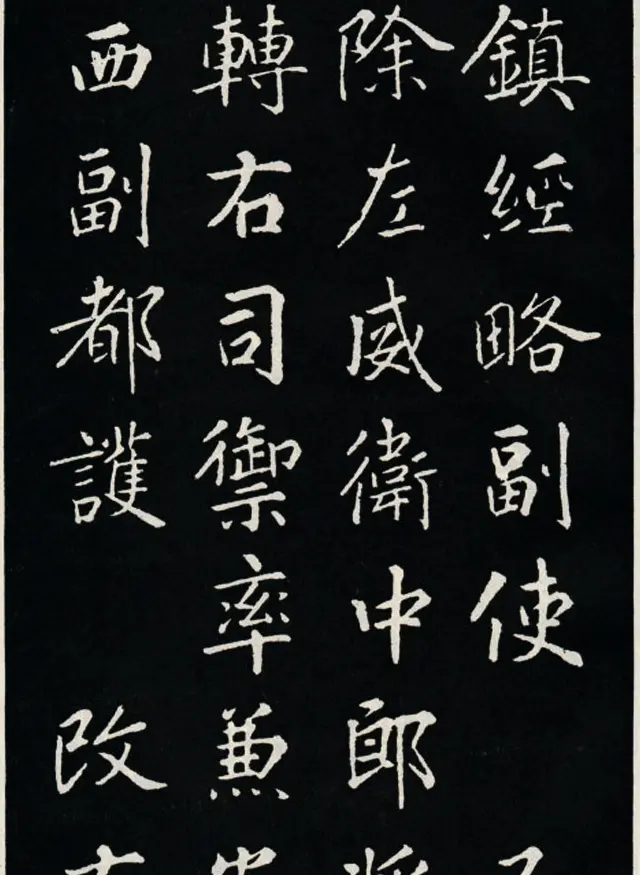 鎮經略副使
除左威衛中郎將
轉右司禦率兼安
西副都護 改